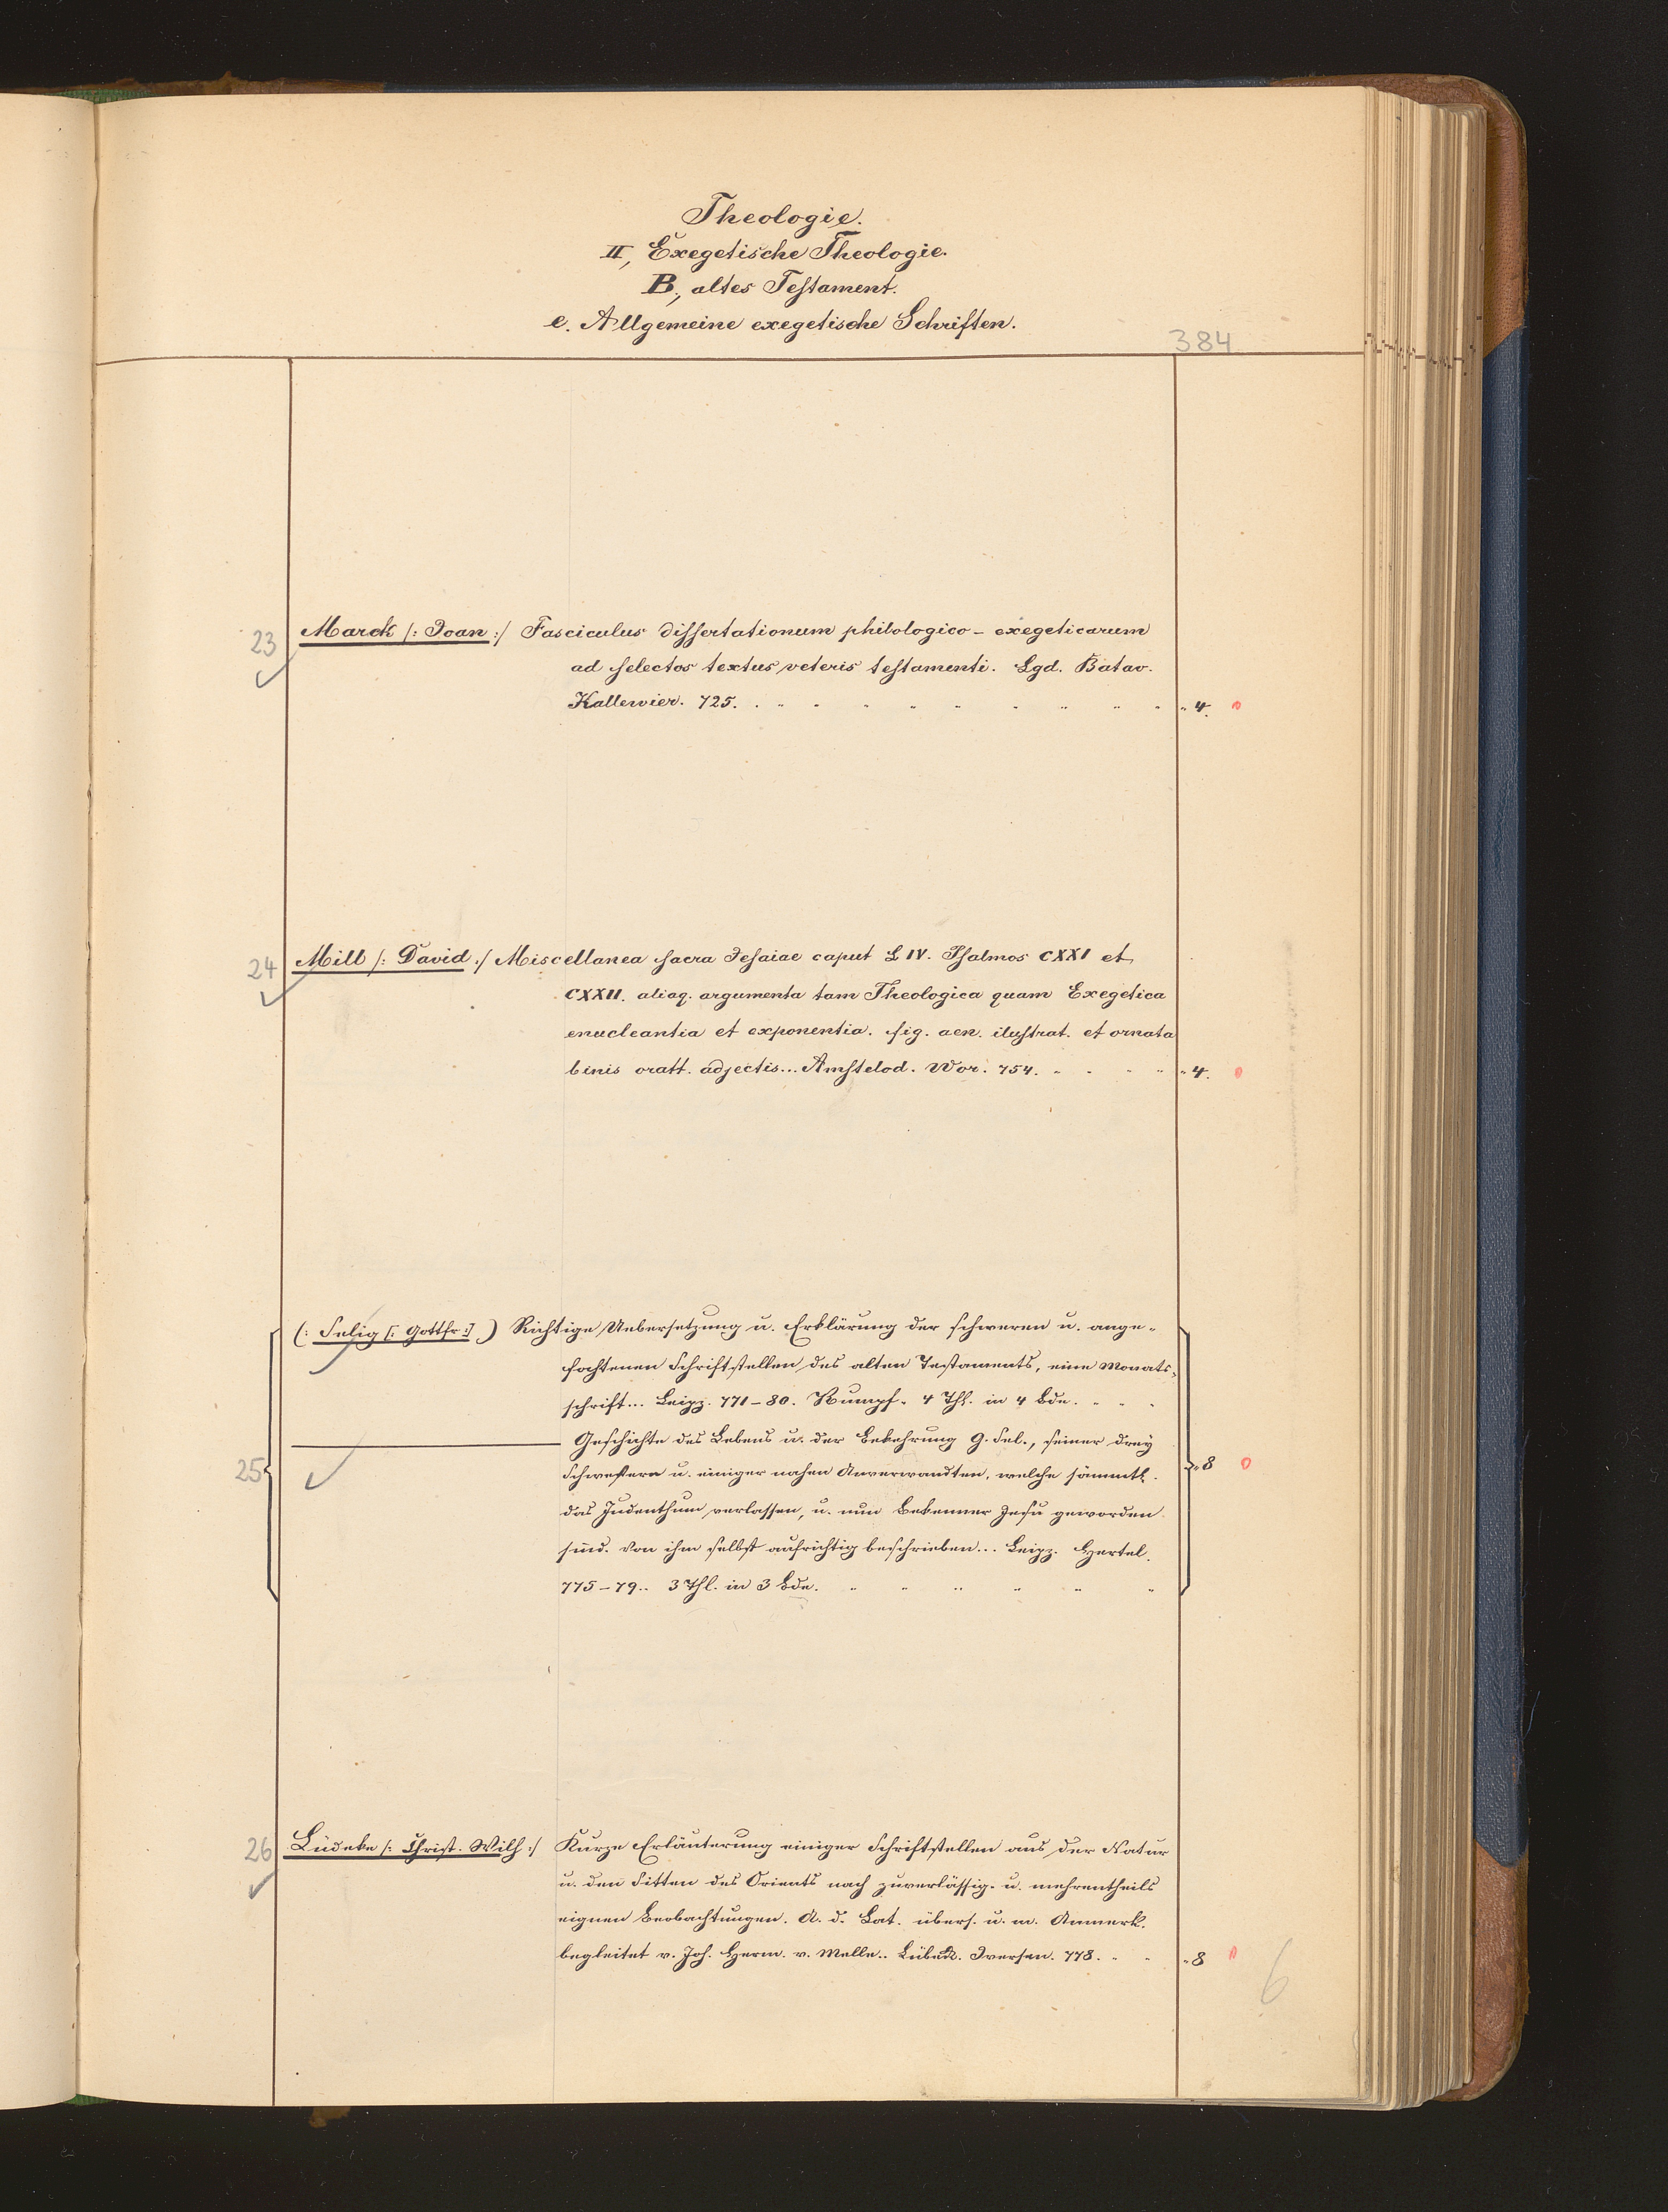 Theologie.
II, Exegetische Theologie.
B., altes Testament.
e. Allgemeine exegetische Schriften.
384
23 Marck /: Joan :/ Fasciculus dissertationum philologico - exegeticarum
ad selectos textus veteris testamenti. Lgd. Batav.
Kallewier. 725. 4.
24 Mill /: David :/ Miscellanea sacra Jesaiae caput LIV. Psalmos CXXI et
CXXII. aliaq. argumenta tam Theologica quam Exegetica
enucleantia et exponentia. fig. aen. ilustrat. et ornata
binis oratt. adjectis... Amstelod. Wor. 754. 4.
(: Selig [: Gottfr :] ) Richtige Uebersetzung u. Erklärung der schweren u. ange-
fochtenen Schriftstellen des alten Testaments, eine Monats-
schrift... Leipz. 771-80. Rumpf. 4 Thl. in 4 Bde.
Geschichte des Lebens u. der Bekehrung G. Sel., seiner drey
25 Schwestern u. einiger nahen Anverwandten, welche sämmtl. 8
das Judenthum verlassen, u. nun Bekenner Jesu geworden
sind. Von ihm selbst aufrichtig beschrieben... Leipz. Hertel.
775-79.. 3 Thl. in 3 Bde.
26 Lüdeke /: Christ. Wilh :/ Kurze Erläuterung einiger Schriftstellen aus der Natur
u. den Sitten des Orients nach zuverlässig. u. mehrentheils
eignen Beobachtungen. A. d. Lat. übers. u. m. Anmerk.
begleitet v. Joh. Herm. v. Melle.. Lübeck. Iversen. 778. 8
6